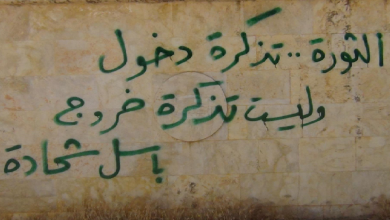 الثورة..تذكرة دخول
وليست تذكرة خروج
باسل شحادة